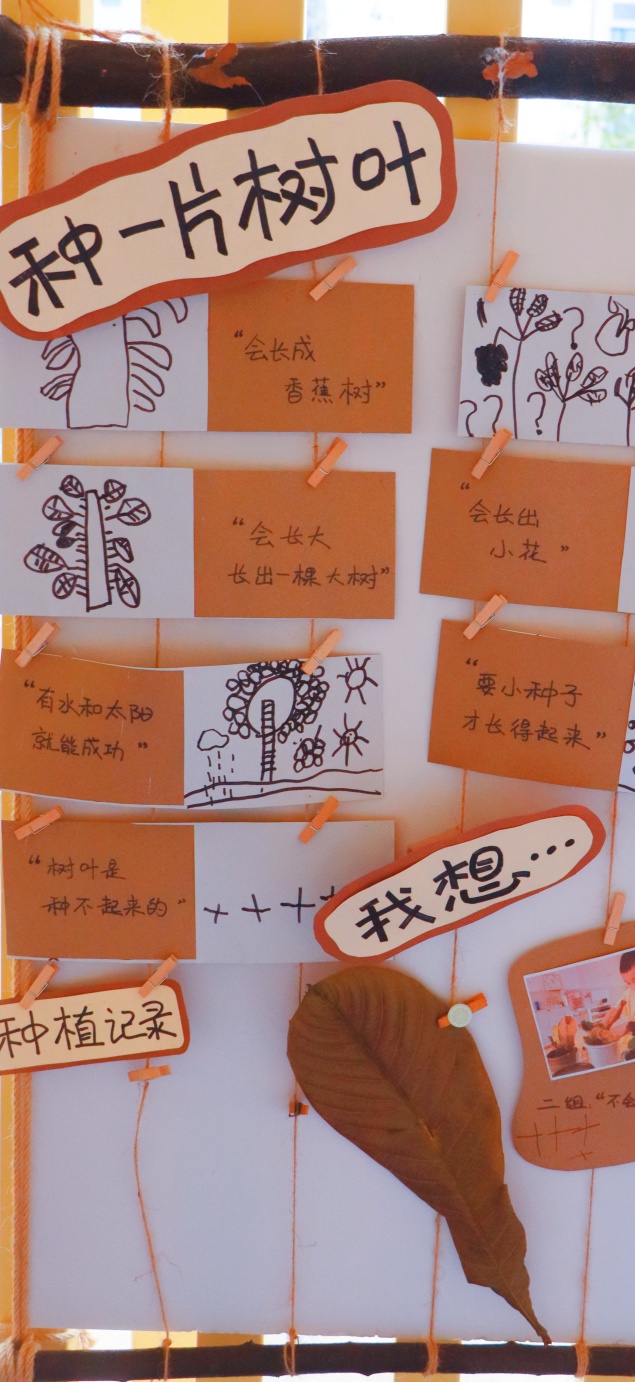 种一片树叶
“会长成
香蕉树”
“会长大
长出一棵大树”
“会长出
小花”
“有水和太阳
就能成功”
“要小种子
才长得起来”
“树叶是
种不起来的”
我想…
种植记录
二组:“不会
? ? ? ?